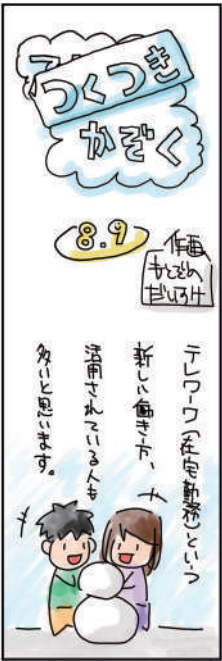 つくつき
かぞく
8.9
作画
もとぞの
だいすけ
テレワーク(在宅勤務)という
新しい働き方、
活用されている人も
多いと思います。